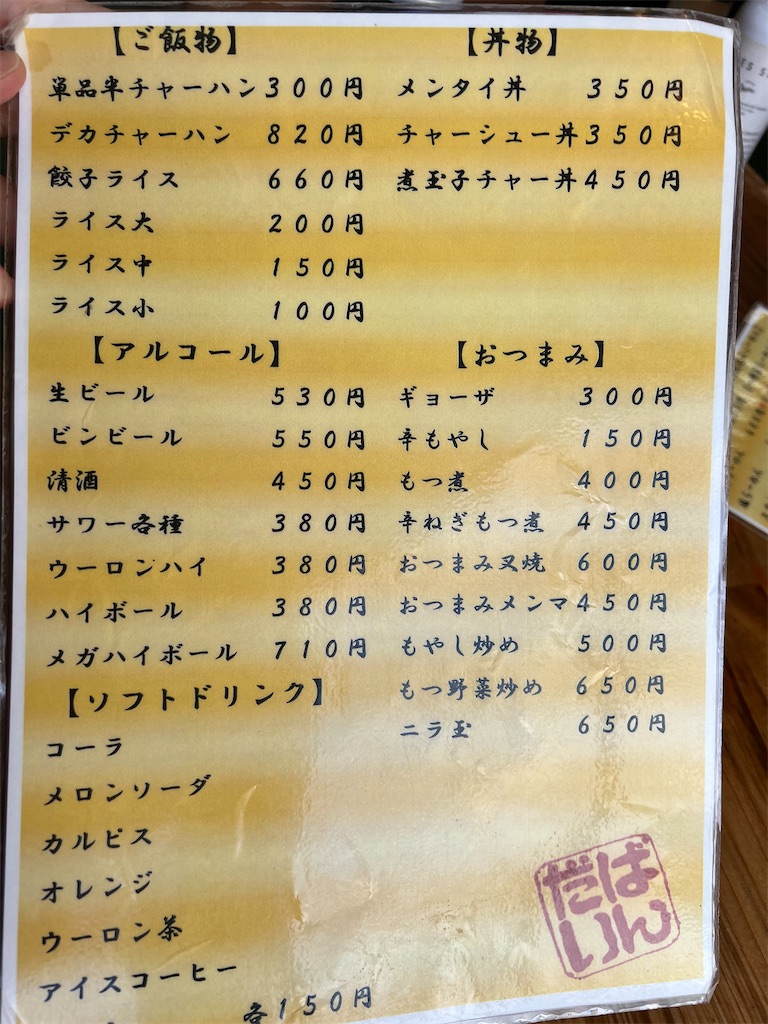 【ご飯物】
単品半チャーハン300円
デカチャーハン 820円
餃子ライス 660円
ライス大 200円
ライス中 150円
ライス小 100円
【丼物】
メンタイ丼 350円
チャーシュー丼350円
煮玉子チャー丼450円
【アルコール】
生ビール 530円
ビンビール 550円
清酒 450円
サワー各種 380円
ウーロンハイ 380円
ハイボール 380円
メガハイボール 710円
【おつまみ】
ギョーザ 300円
辛もやし 150円
もつ煮 400円
辛ねぎもつ煮 450円
おつまみ叉焼 600円
おつまみメンマ450円
もやし炒め 500円
もつ野菜炒め 650円
ニラ玉 650円
【ソフトドリンク】
コーラ
メロンソーダ
カルピス
オレンジ
ウーロン茶
アイスコーヒー
各150円
ばん
だい